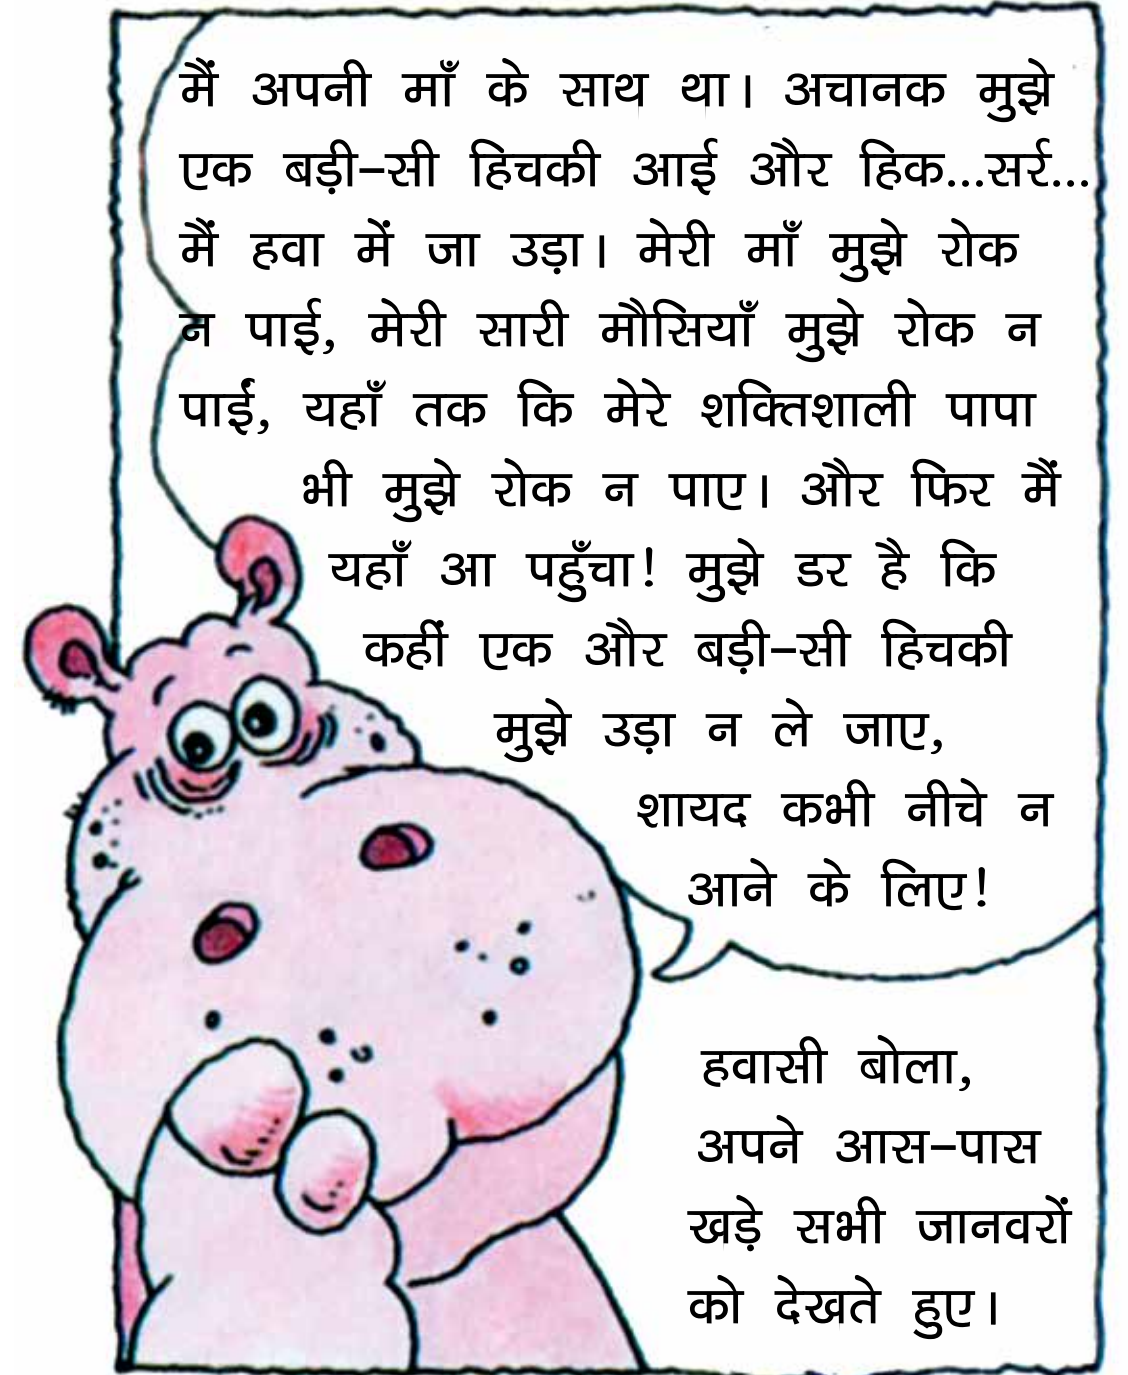 मैं अपनी माँ के साथ था। अचानक मुझे
एक बड़ी-सी हिचकी आई और हिक...सर्र...
मैं हवा में जा उड़ा। मेरी माँ मुझे रोक
न पाई, मेरी सारी मौसियाँ मुझे रोक न
पाईं, यहाँ तक कि मेरे शक्तिशाली पापा
भी मुझे रोक न पाए। और फिर मैं
यहाँ आ पहुँचा! मुझे डर है कि
कहीं एक और बड़ी-सी हिचकी
मुझे उड़ा न ले जाए,
शायद कभी नीचे न
आने के लिए!
हवासी बोला,
अपने आस-पास
खड़े सभी जानवरों
को देखते हुए।